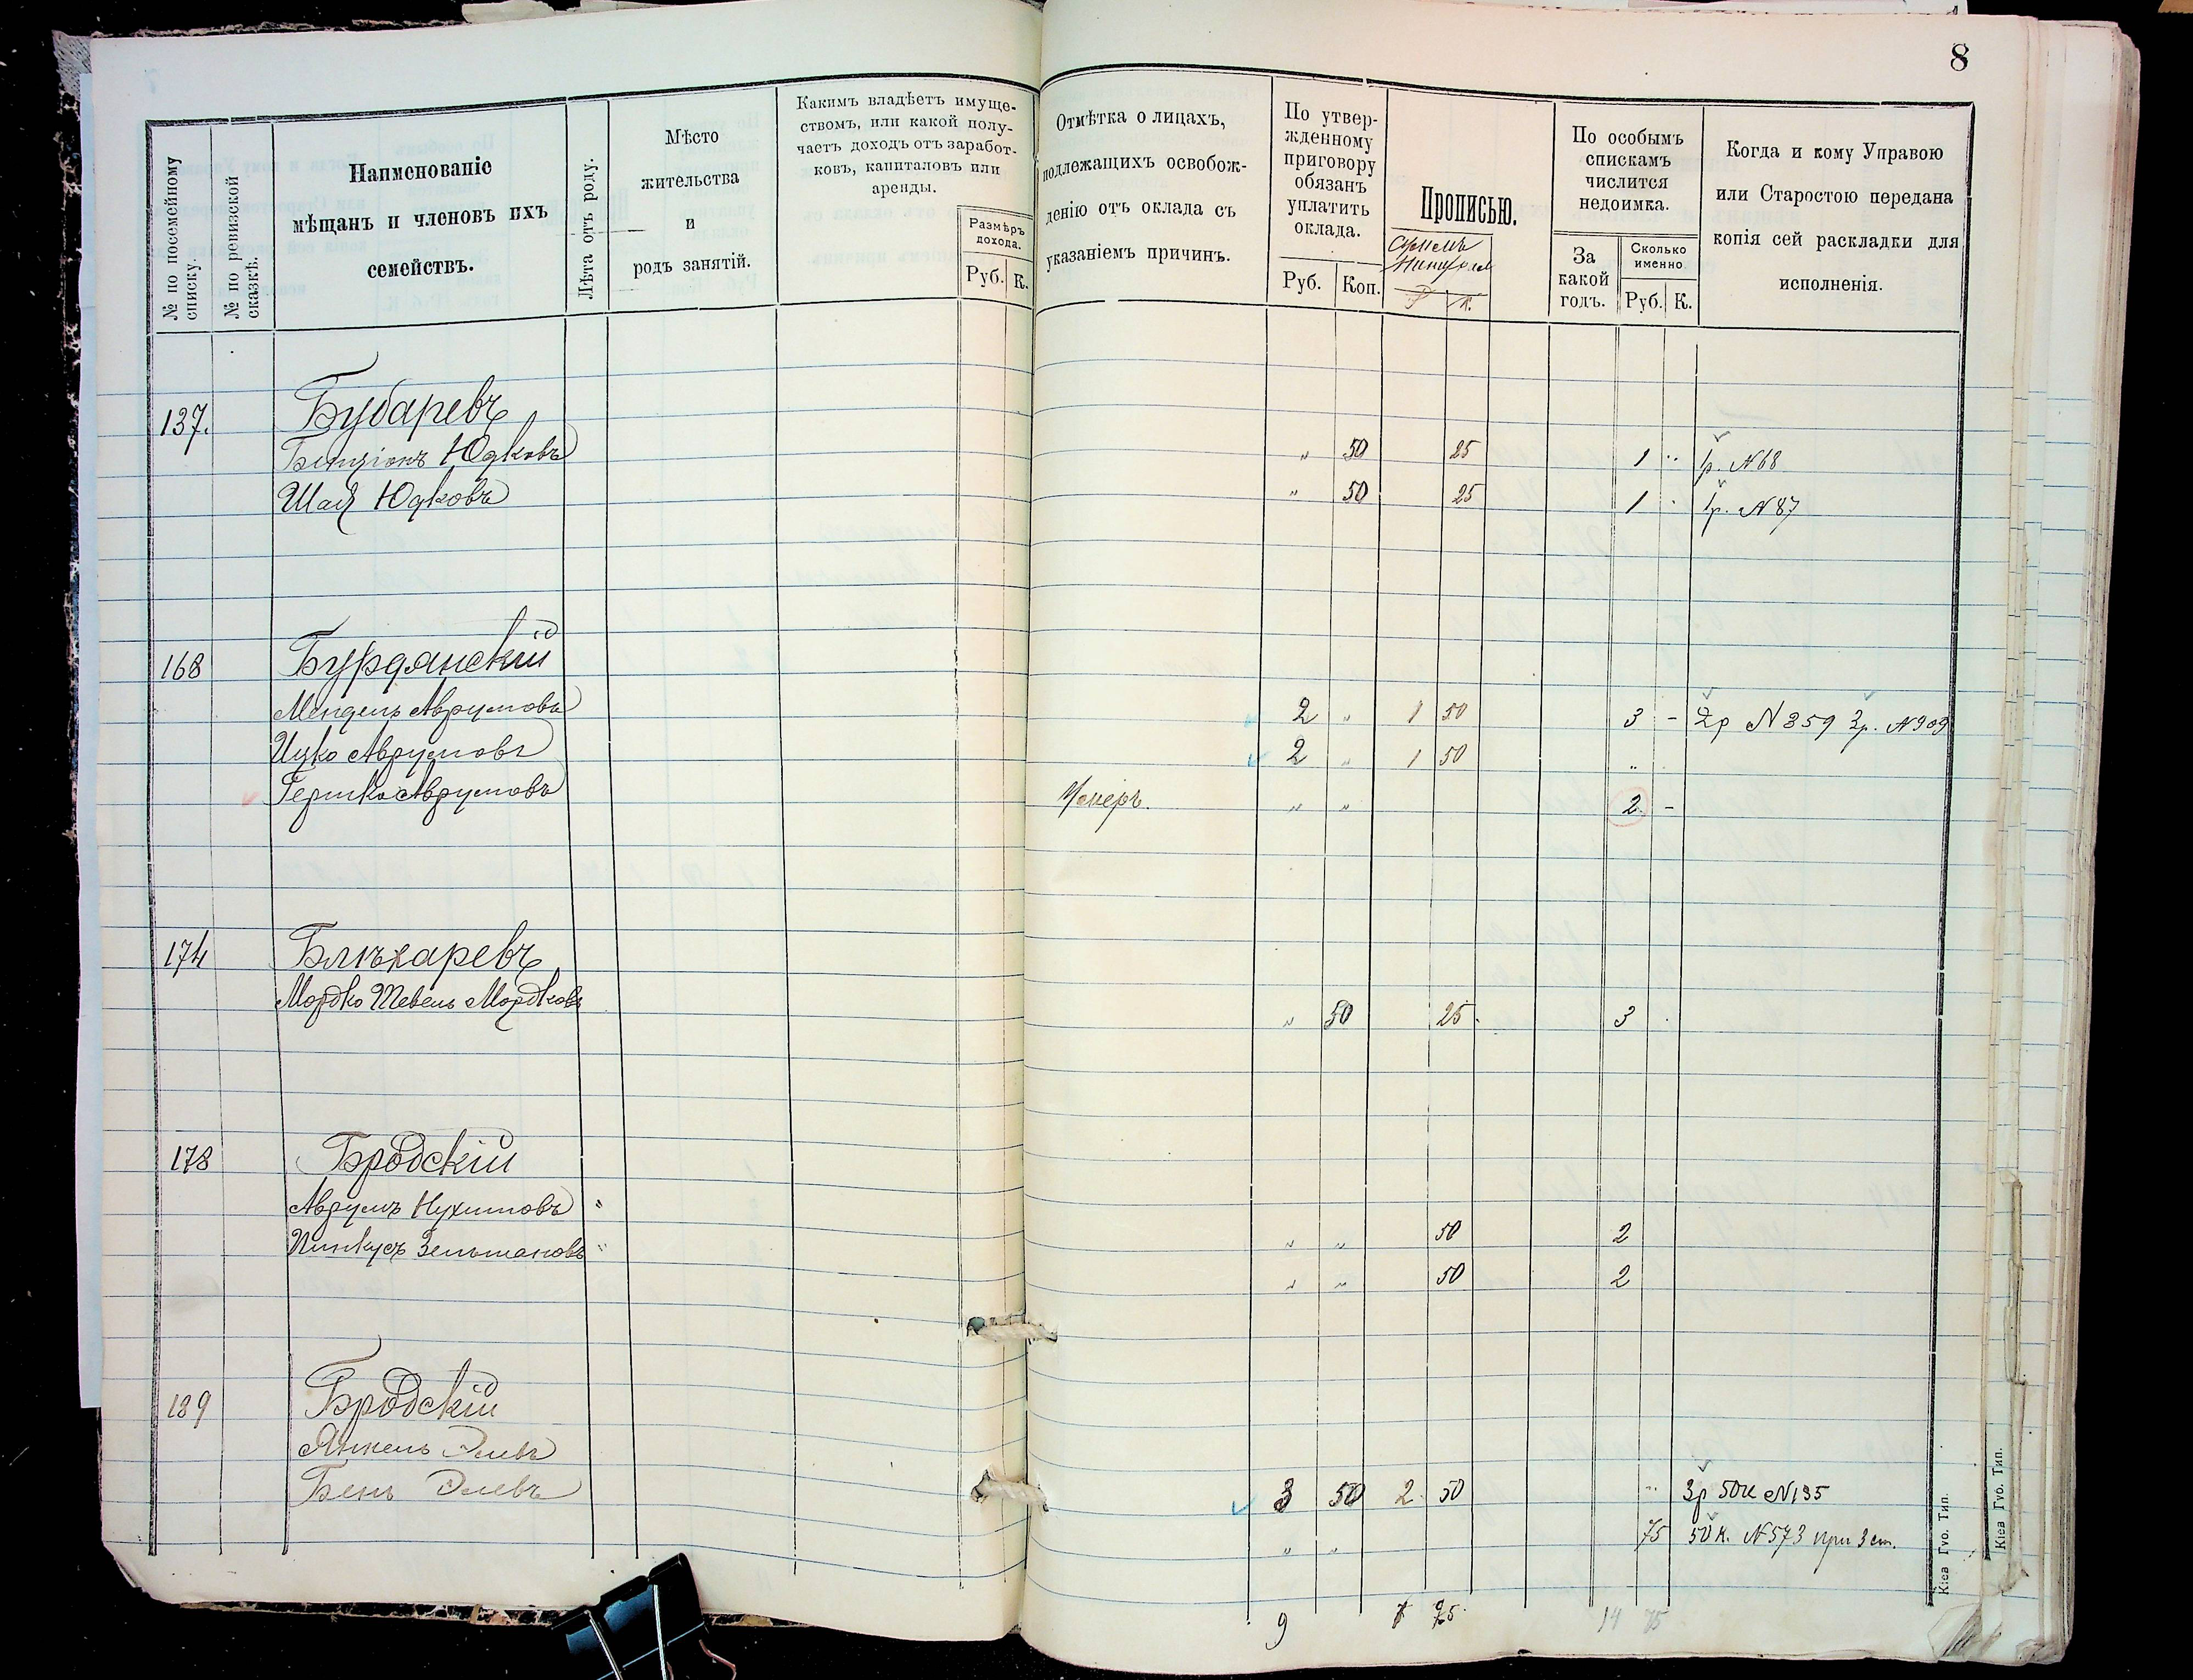 8
№ по посемейному списку.
№ по ревизской сказкѣ.
Наименованіе
мѣщанъ и членовъ ихъ
семействъ.
Лѣта отъ роду.
Мѣсто
жительства
и
родъ занятій.
Какимъ владѣетъ имуще-
ствомъ, или какой полу-
чаетъ доходъ отъ заработ-
ковъ, капиталовъ или
аренды.
Размѣръ
дохода.
Руб. К.
Отмѣтка о лицахъ,
подлежащихъ освобож-
денію отъ оклада съ
указаніемъ причинъ.
По утвер-
жденному
приговору
обязанъ
уплатить
оклада.
Руб. Коп.
Прописью.
Р К.
По особымъ
спискамъ
числится
недоимка.
За
какой
годъ.
Сколько
именно
Руб. К.
Когда и кому Управою
или Старостою передана
копія сей раскладки для
исполненія.
137. Бубаревъ
Бенціонъ Юдковъ „ 50 25 1 „ 1р. №68
Шая Юдковъ „ 50 25 1 1р. №87
168 Бурдянскій
Мендель Аврумовъ 2 „ 1 50 3 - 2р №359 3р. №909
Ицко Аврумовъ 2 „ 1 50 „
Гершко Аврумовъ Умеръ. „ „ 2 -
174 Блѣхаревъ
Мордко Тевель Мордковъ „ 50 25 3
178 Бродскій
Аврумъ Нухимовъ „ „ „ 50 2
Пинкусъ Зельмановъ „ „ „ 50 2
189 Бродскій
Янкель Элевъ 3 50 2 50 „ 3р 50к №135
Бень Элевъ „ „ 75 50 к. №573 при 3 ст.
9 7 75 14 75
Кіев Гус. Тип.
Кіев Гус. Тип.